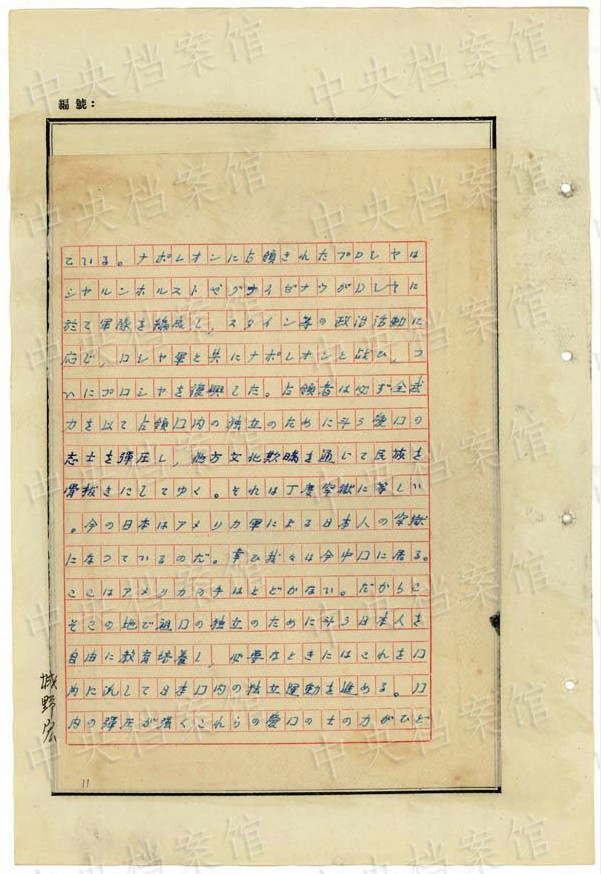 編號：
ている。ナポレオンに占領されたプロシヤは
シヤルンホルストやグナイゼナウがロシヤに
於て軍隊を編成し、スタイン等の政治活動に
応じ、ロシヤ軍と共にナポレオンと戦ひ、つ
いにプロシヤを復興した。占領者は必ず全武
力を以て占領口内の独立のために斗う愛口の
志士を弾圧し、他方文化欺瞞を通じて民族を
骨抜きにしてゆく。それは丁度牢獄に等しい
。今の日本はアメリカ軍による日本人の牢獄
になつているのだ。幸ひ我々は今中口に居る。
ここはアメリカの手はとどかない。だからこ
そこの地で祖口の独立のために斗う日本人を
自由に教育培養し、必要なときにはこれを口
内に流して日本口内の独立運動を進める。口
内の弾圧が強くこれらの愛口の士の力がひど
城野宏
11
中央档案馆